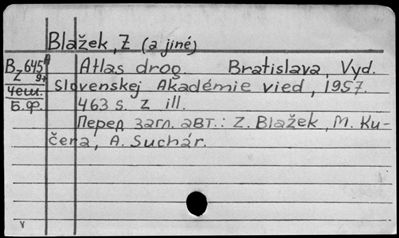 Blažek, Z (a jiné)
B-645 Atlas drog. Bratislava, Vyd.
Slovenskej Akadémie vied, 1957.
Чеш. 463 s. Z ill.
Б.Ф. Перед загл. авт.: Z. Blažek, M. Ku-
čera, A. Suchár.